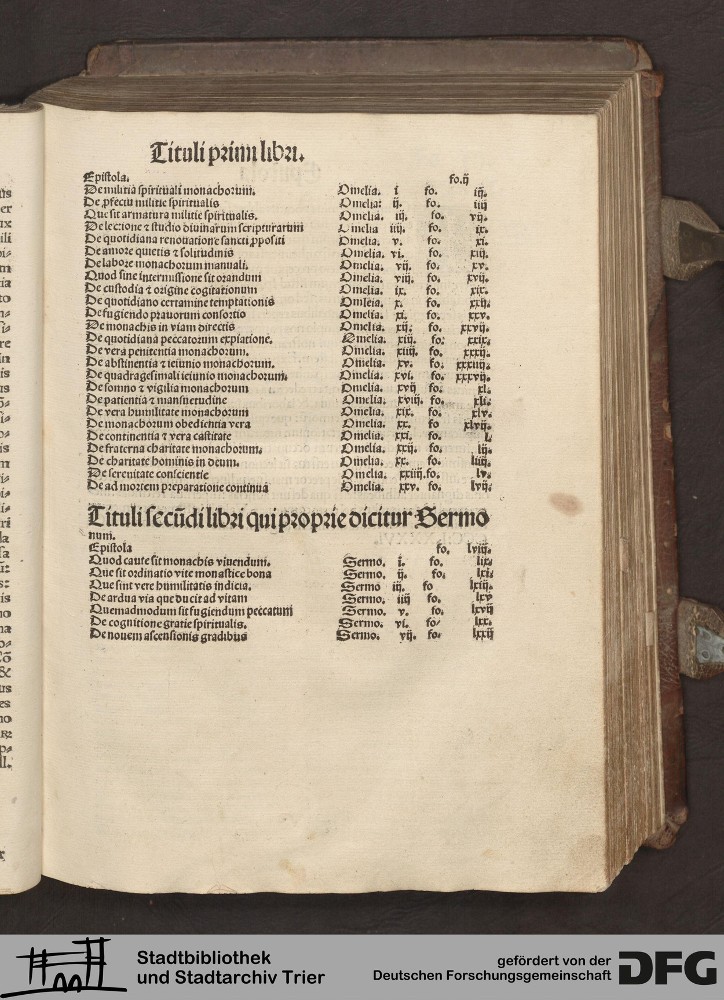 Tituli primi libri.
Epistola. fo.ij
De militia spirituali monachorum. Omelia. i fo. iij.
De ꝓfectu militie spiritualis Omelia: ij. fo. iiij
Que sit armatura militie spiritualis. Omelia. iij. fo. vij.
De lectione ⁊ studio diuinarum scripturarum Omelia iiij. fo. ix.
De quotidiana renouatione sancti ꝓpositi Omelia. v. fo. xi.
De amore quietis ⁊ solitudinis Omelia. vi. fo. xiij.
De labore monachorum manuali. Omelia. vij. fo. xv.
Quod sine intermissione sit orandum Omelia. viij. fo. xvij.
De custodia ⁊ origine cogitationum Omelia. ix. fo. xix.
De quotidiano certamine temptationis Omleia. x. fo. xxij.
De fugiendo prauorum consortio Omelia. xi. fo. xxv.
De monachis in viam directis Omelia. xij: fo. xxvij.
De quotidiana peccatorum expiatione. Omelia. xiij. fo: xxix.
De vera penitentia monachorum. Omelia. xiiij. fo. xxxij.
De abstinentia ⁊ ieiunio monachorum. Omelia. xv. fo. xxxiiij.
De quadragesimali ieiunio monachorum. Omelia. xvi. fo. xxxvij.
De somno ⁊ vigilia monachorum Omelia. xvij fo. xl.
De patientia ⁊ mansuetudine Omelia. xviij. fo. xli.
De vera humilitate monachorum Omelia. xix. fo. xlv.
De monachorum obedientia vera Omelia. xx. fo xlvij.
De continentia ⁊ vera castitate Omelia. xxi. fo. l.
De fraterna charitate monachorum. Omelia. xxij. fo. lij.
De charitate hominis in deum. Omelia. xx. fo. liiij.
De serenitate conscientie Omelia. xxiiij.fo. lv.
De ad mortem preparatione continua Omelia. xxv. fo. lvij.
Tituli secūdi libri qui proprie dicitur Sermo
num.
Epistola fo. lviij.
Quod caute sit monachis viuendum. Sermo. i. fo. lix.
Que sit ordinatio vite monastice bona Sermo. ij. fo: lxi.
Que sint vere humilitatis indicia. Sermo iij. fo lxiij.
De ardua via que ducit ad vitam Sermo. iiij fo. lxv
Quemadmodum sit fugiendum peccatum Sermo. v. fo. lxvij
De cognitione gratie spiritualis. Sermo. vi. fo. lxx.
De nouem ascensionis gradibus Sermo. vij. fo. lxxij
Stadtbibliothek
und Stadtarchiv Trier
gefördert von der
Deutschen Forschungsgemeinschaft DFG